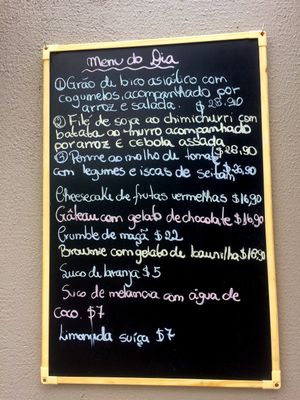 Menu do Dia
①Grão de bico asiático com
cogumelos, acompanhado por
arroz e salada. $28,90
② Filé de soja ao chimichurri com
batata ao murro acompanhado
por arroz e cebola assada
$28,90
③ Penne ao molho de tomate
com legumes e iscas de seitan $26,90
Cheesecake de frutas vermelhas $16,90
Gâteau com gelato de chocolate $16,90
Crumble de maçã $22
Brownie com gelato de baunilha $16,90
Suco de laranja $5
Suco de melancia com água de
coco. $7
Limonada suíça $7